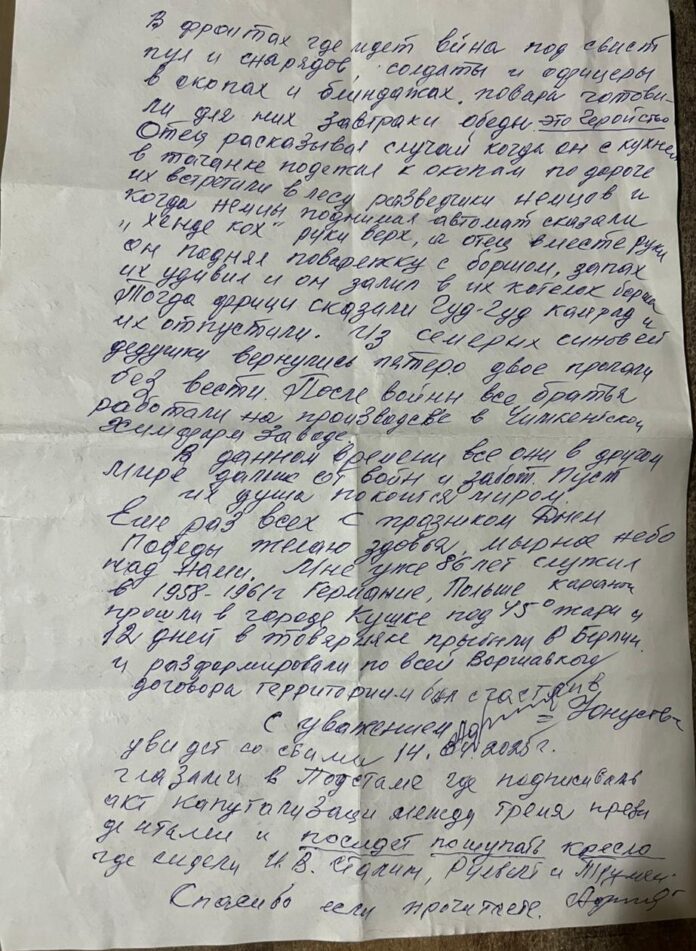 В фронтах где идет вйна под свист
пул и снарядов, солдаты и офицеры
в окопах и блиндажах, повара готови-
ли для них завтраки обеды это Геройство
Отец расказывал случай когда он с кухней
в тачанке подежал к окопам по дороге
их встретили в лесу разведчики немцов и
когда немцы поднимая автомат сказали
„Хенде хох" руки верх, а отец вместе руки
он поднял поварежку с боршом, запах
их удивил и он залил в их котелок борша
Тогда фрици сказали Гуд-Гуд камрад и
их отпустили. Из семерих синовей
дедушки вернулись пятеро двое пропали
без вести. После войни все братья
работали на производстве в Чимкентской
Химфарм Заводе.
В данном времени все они в другом
мире далико от войн и забот. Пуст
их душа покоится миром.
Еше раз всех с празником Днем
Победы желаю здовья, мырное небо
над нами. Мне уже 86 лет служил
в 1958-1961г Германие, Польше карантин
прошли в городе Кушке под 45° жари и
12 дней в товарняке прыбыли в Берлин
и разформировали по всей Воршавкому
договора территориям был счастлив
С уважением Юнусов
увидет со своими 14.04.2025г.
глазами в Подстаме где подписивали
акт капутализаци между тремя прези
дентами и посидет пошупать кресло
где сидели И.В. Сталин, Рузвельт и Трумен.
Спасибо если прочитаете.